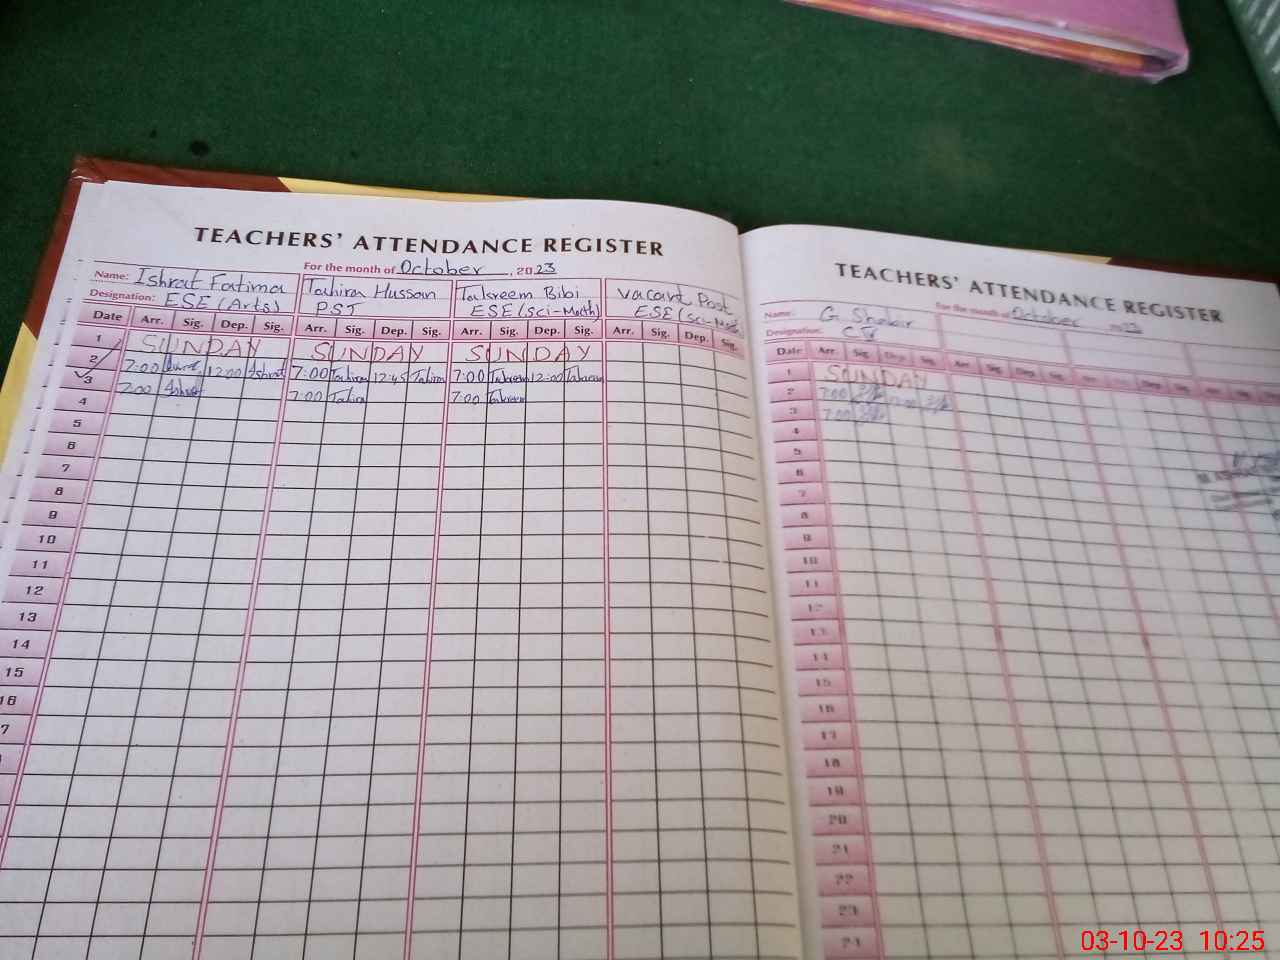 TEACHERS' ATTENDANCE REGISTER
For the month of October, 2023
Name: Ishrat Fatima Tahira Hussan Takreem Bibi Vacant Post
Designation: ESE (Arts) PST ESE (Sci-Math) ESE (Sci-Math)
Date Arr. Sig. Dep. Sig. Arr. Sig. Dep. Sig. Arr. Sig. Dep. Sig. Arr. Sig. Dep. Sig.
1 SUNDAY SUNDAY SUNDAY
2 7:00 Ishrat 12:00 Ishrat 7:00 Tahira 12:45 Tahira 7:00 Takreem 12:00 Takreem
3 7:00 Ishrat 7:00 Tahira 7:00 Takreem
4
5
6
7
8
9
10
11
12
13
14
15
16
7
TEACHERS' ATTENDANCE REGISTER
For the month of October 2023
Name: G Shabir
Designation: CT
Date Arr. Sig. Dep. Sig. Arr. Sig. Dep. Sig. Arr. Sig. Dep. Sig. Arr. Sig.
1 SUNDAY
2 7:00 12:00
3 7:00
4
5
6
7
8
9
10
11
12
13
14
15
16
17
18
19
20
21
22
23
24
03-10-23 10:25